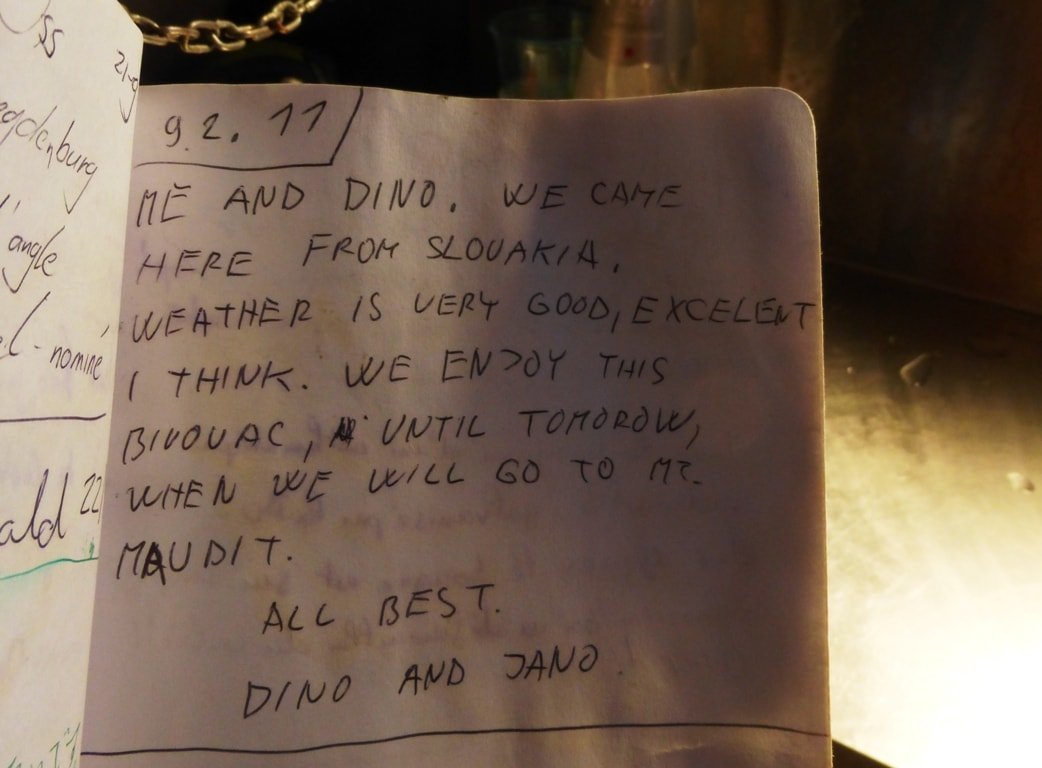 oss
21-9
egdenburg
angle
el-nominé
ald 22
9.2.11
ME AND DINO. WE CAME
HERE FROM SLOVAKIA.
WEATHER IS VERY GOOD, EXCELENT
I THINK. WE ENJOY THIS
BIVOUAC, UNTIL TOMOROW,
WHEN WE WILL GO TO MT.
MAUDIT.
ALL BEST.
DINO AND JANO.